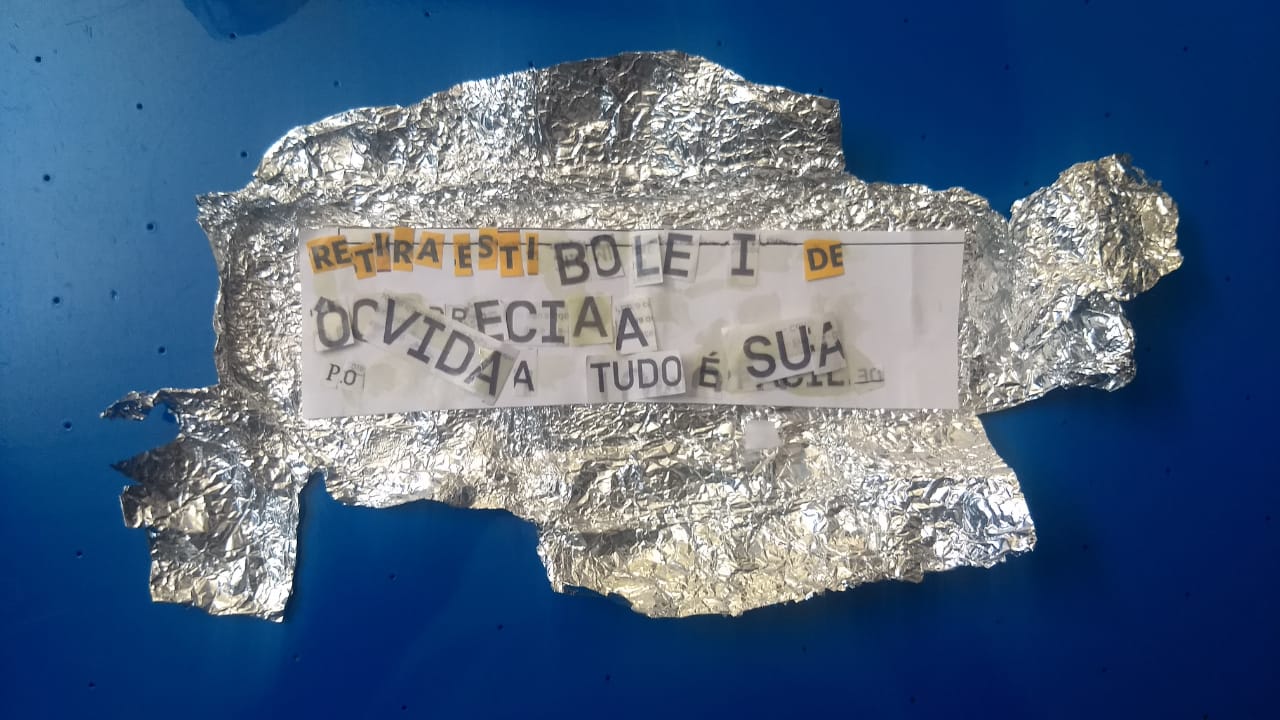 RETIRA ESTI BOLE I DE
OC VIDA PRECIA A A
P.O A TUDO É SUA